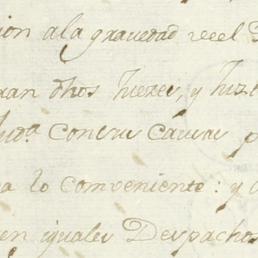 ion ala gravedad
ran dhos Jueces, y
contra causa
a lo conveniente: y
en iguales Despachos